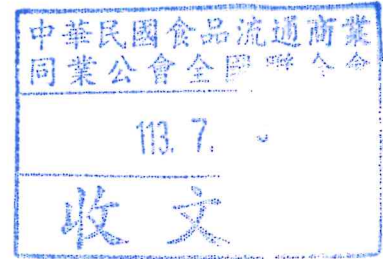 中華民國食品流通商業
同業公會全國聯合會
113. 7.
收文